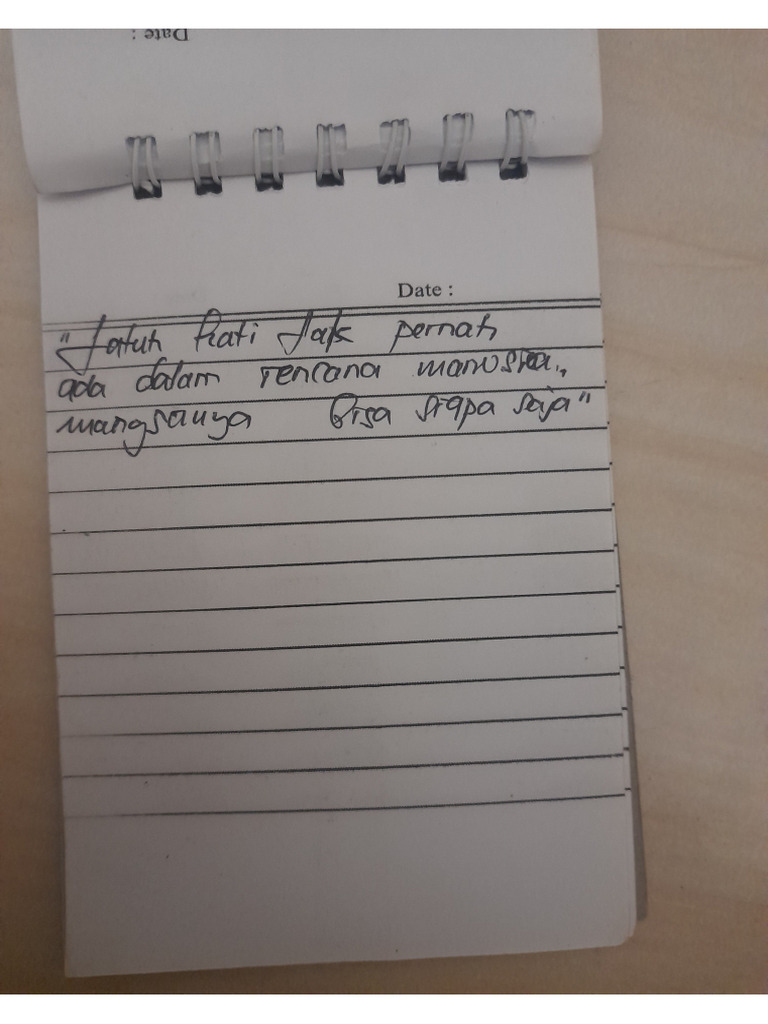 Date :
Date :
"Jatuh hati tak pernah
ada dalam rencana manusia,,
mangsanya bisa siapa saja"